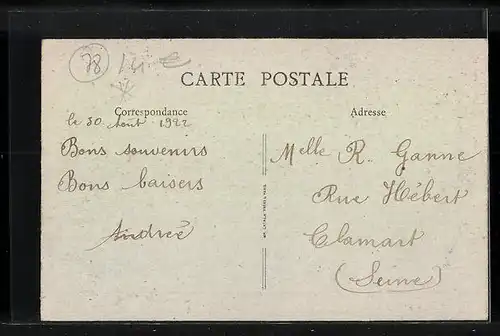 78 14 €
CARTE POSTALE
Correspondance
Adresse
le 30 Août 1922
Bons souvenirs
Bons baisers
Andrée
Melle R. Ganne
Rue Hébert
Clamart
(Seine)